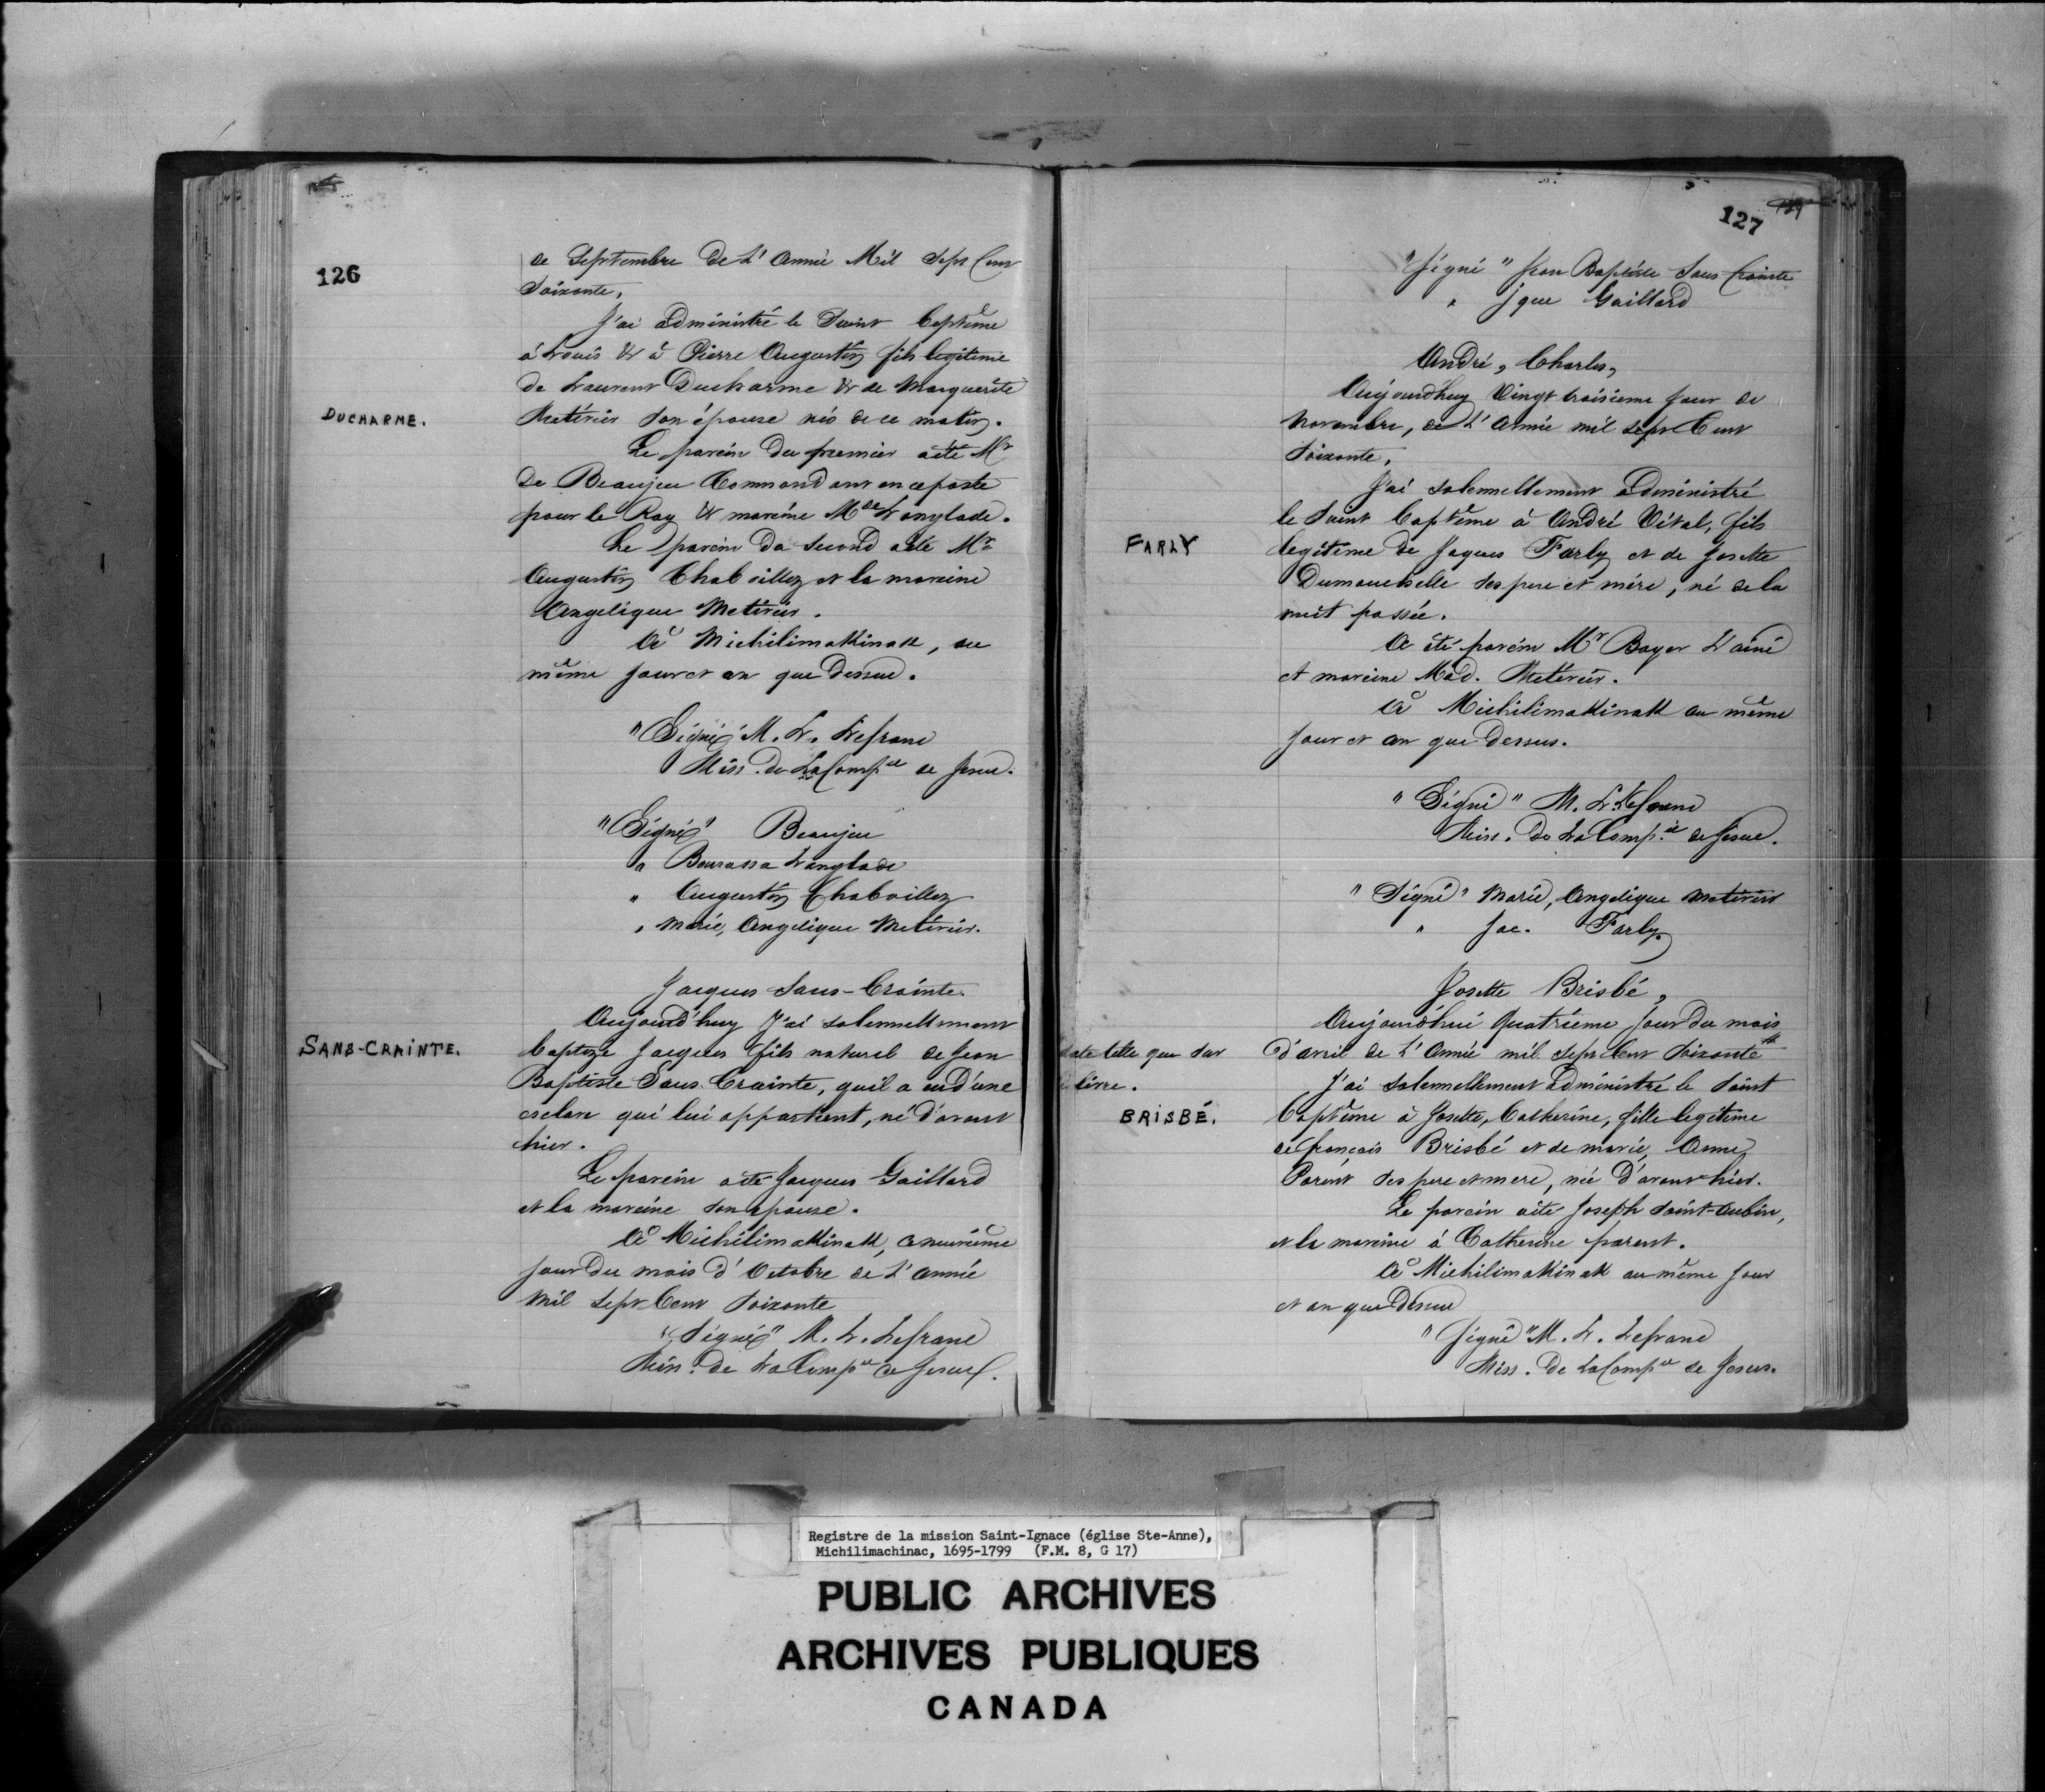 126
de Septembre de L'Année Mil Sept Cent
Soixante,
J'ai administré le Saint Baptême
à Louis & à Pierre Augustin fils legitime
de Laurent Ducharme & de Marguerite
DUCHARME.
Metivier son épouse nés de ce matin.
Le parein du premier a été Mr
De Beaujeu Commandant en ce poste
pour le Roy & mareine Mde Langlade.
Le parein du second a été Mr
Augustin Chaboillez et la mareine
Angelique Metivier.
A Michilimakinak, au
même jour et an que Dessus.
"Signé" M. L. Lefranc
Miss. de La Compie de Jesus.
"Signé" Beaujeu
" Bourassa Langlade
" Augustin Chaboillez
" Marie, Angelique Metivier.
Jacques Sans-Crainte.
Aujourd'huy J'ai solennellement
SANS-CRAINTE.
baptizé Jacques fils naturel de Jean
Baptiste Sans Crainte, qu'il a eu d'une
esclave qui lui appartient, né d'avant
hier.
Le parein a été Jacques Gaillard
et la mareine son epouse.
A Michilimakinak, ce neuvième
jour du mois d'Octobre de L'année
Mil Sept Cent Soixante
"Signé" M. L. Lefranc
Miss. de La Compie de Jesus.
127
"Signé" Jean Baptiste Sans Crainte
" Jque Gaillard
André, Charles,
Aujourdhuy Vingt troisieme jour de
Novembre, de L'Année mil sept Cent
Soixante,
J'ai solennellement administré
le Saint Baptême à André Vital, fils
FARLY
legitime de Jaques Farly et de Josette
Dumouchelle ses pere et mère, né de la
nuit passée.
A été parein Mr Boyer L'ainé
et mareine Mad. Metivier.
A Michilimakinak au même
jour et an que Dessus.
"Signé" M. L. Lefranc
Miss. de La Compie de Jesus.
"Signé" Marie, Angelique Metivier
" Jac. Farly
Josette Brisbé,
Aujourd'hui Quatrième jour du mois
date telle que sur
d'avril de L'Année mil sept Cent Soixante
livre.
J'ai solennellement administré le Saint
BRISBÉ.
Baptême à Josette, Catherine, fille legitime
de françois Brisbé et de marie, Anne,
Parent ses pere et mere, née D'avant hier.
Le parein a été Joseph Saint-Aubin,
et la mareine à Catherine parent.
A Michilimakinak au même jour
et an que Dessus
"Signé" M. L. Lefranc
Miss. de La Compie de Jesus.
Registre de la mission Saint-Ignace (église Ste-Anne),
Michilimachinac, 1695-1799 (F.M. 8, G 17)
PUBLIC ARCHIVES
ARCHIVES PUBLIQUES
CANADA